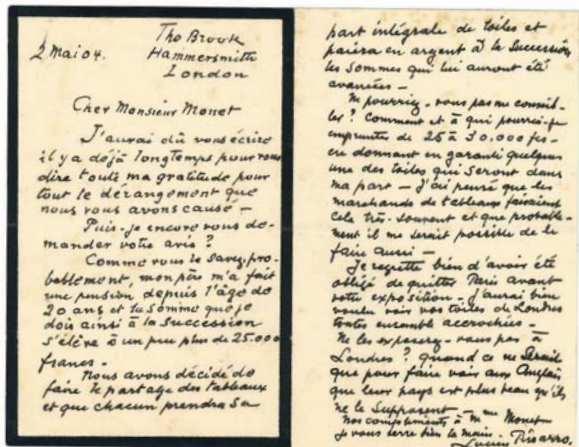 The Brook
2 Mai 04. Hammersmith
London
Cher Monsieur Monet
J'aurai dû vous écrire
il y a déjà longtemps pour vous
dire toute ma gratitude pour
tout le dérangement que
nous vous avons causé -
Puis-je encore vous de-
mander votre avis ?
Comme vous le savez, pro-
bablement, mon père m'a fait
une pension depuis l'âge de
20 ans et la somme que je
dois ainsi à la Succession
s'élève à un peu plus de 25.000
francs -
Nous avons décidé de
faire le partage des tableaux
et que chacun prendra sa
part intégrale de toiles et
paiera en argent à la Succession
les sommes qui lui auront été
avancées -
Ne pourriez-vous pas me conseil-
ler ? Comment et à qui pourrai-je
emprunter de 25 à 30.000 frs -
en donnant en garanti quelques
une des toiles qui seront dans
ma part - J'ai pensé que les
marchands de tableaux faisaient
cela très-souvent et que probable-
ment il me serait possible de le
faire aussi -
Je regrette bien d'avoir été
obligé de quitter Paris avant
votre exposition - J'aurai bien
voulu voir vos toiles de Londres
toutes ensemble accrochées -
Ne les exposerez-vous pas à
Londres ? quand ce ne serait
que pour faire voir aux Anglais
que leur pays est plus beau qu'ils
ne le supposent -
Nos compliments à Mme Monet
Je vous serre bien la main -
Lucien Pissarro